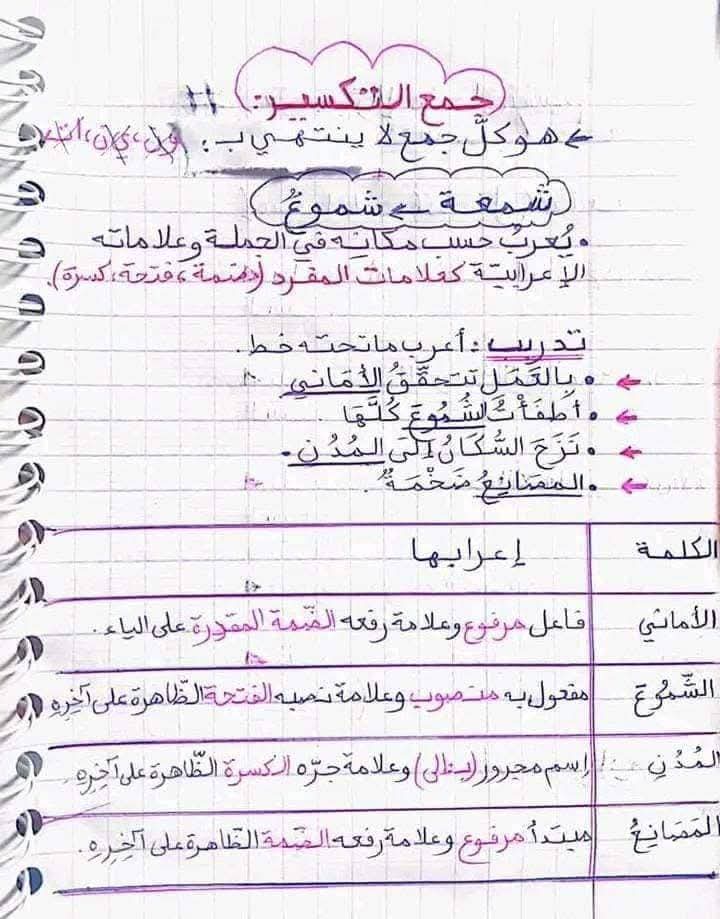 جمع التكسير:
← هو كلّ جمع لا ينتهي بـ: (ون، ين، ات)
شمعة ← شموعٌ
• يُعربُ حسب مكانِه في الجملة وعلاماته
الإعرابيّة كعلامات المفرد (ضمة، فتحة، كسرة).
تدريب: أعرب ما تحته خط.
← • بِالعَمَلِ تتحقّقُ الأمَاني
← • أطفَأْتُ الشُّمُوعَ كُلَّهَا
← • نَزَحَ السُّكَانُ إلَى المُدُنِ.
← • المصَانِعُ ضَخْمَةٌ.
الكلمة إعرابها
الأماني فاعل مرفوع وعلامة رفعه الضّمة المقدرة على الياء.
الشّمُوعَ مفعول به منصوب وعلامة نصبه الفتحة الظّاهرة على آخِرِهِ
المُدُنِ إسم مجرور (بـإلى) وعلامة جرّه الكسرة الظّاهرة على آخِرِهِ.
المَصَانِعُ مبتدأ مرفوع وعلامة رفعه الضّمة الظّاهرة على آخِرِهِ.